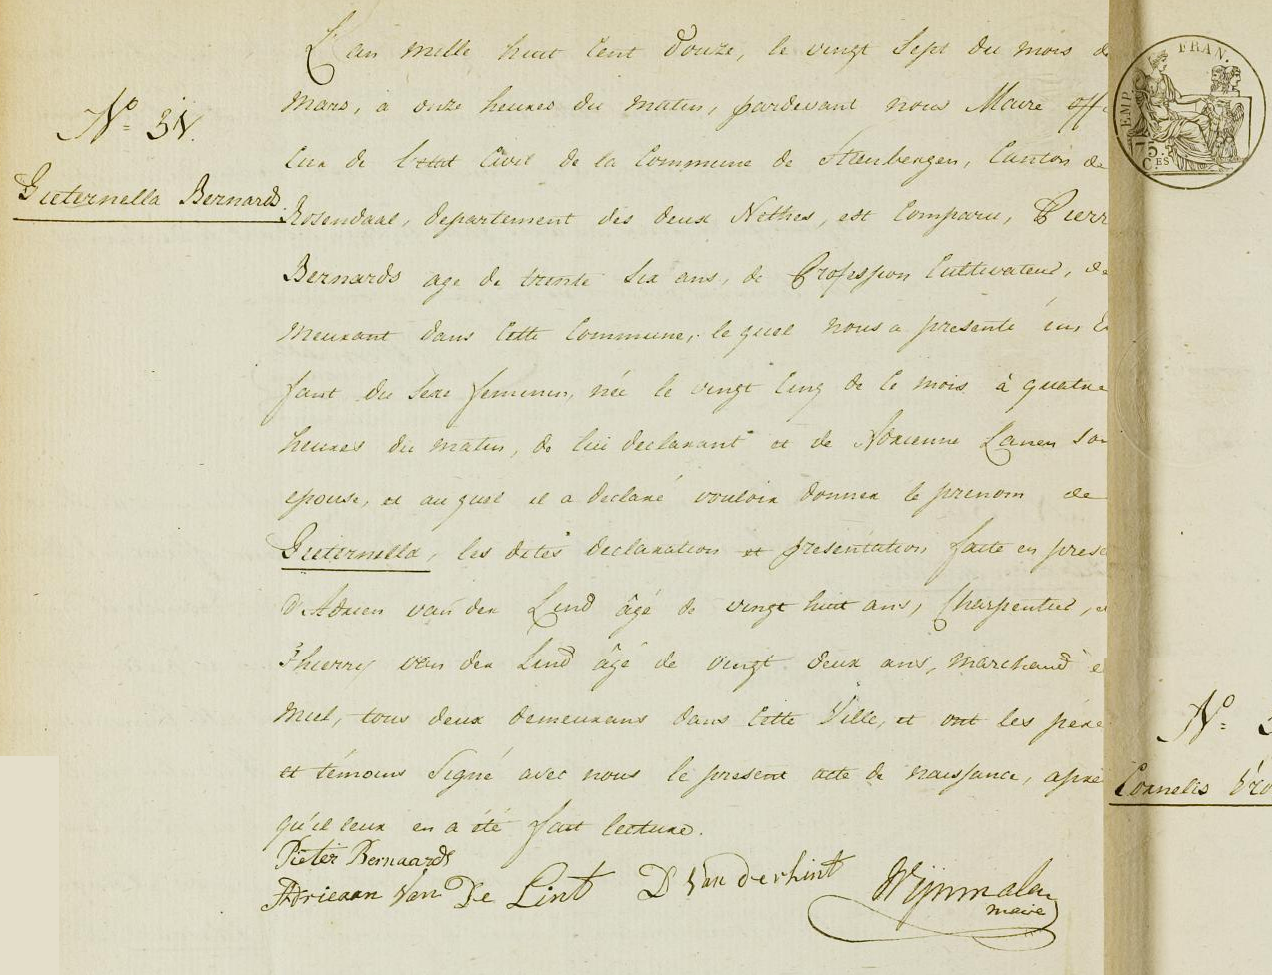 L'an mille huit cent douze, le vingt sept du mois d
mars, à onze heures du matin, pardevant nous Maire offi
cier de l'etat civil de la Commune de Steenbergen, Canton de
Rosendaal, departement des deux Nethes, est comparu, Pierr
Bernards age de trente six ans, de Profession Cultivateur, de
meurant dans cette Commune, le quel nous a presenté un E
fant du sexe feminin, née le vingt cinq de ce mois à quatre
heures du matin, de lui declarant et de Adrienne Lanen son
epouse, et au quel il a declaré vouloir donner le prenom de
Pieternella, les dites declaration et presentation faite en prese
d'Adrien van der Lind âgé de vingt huit ans, Charpentier, e
Thierry van der Lind âgé de vingt deux ans, marchand e
miel, tous deux demeurans dans cette Ville, et ont les père
et témoins signé avec nous le present acte de naissance, apré
qu'il leur en a été fait lecture.
Pieter Bernaards
Adriaan Van De Lint D Van der Lint Wijnmalen
maire
Nº
Pieternella Bernards
EMP. FRAN.
75 CES
Nº
Cornelis